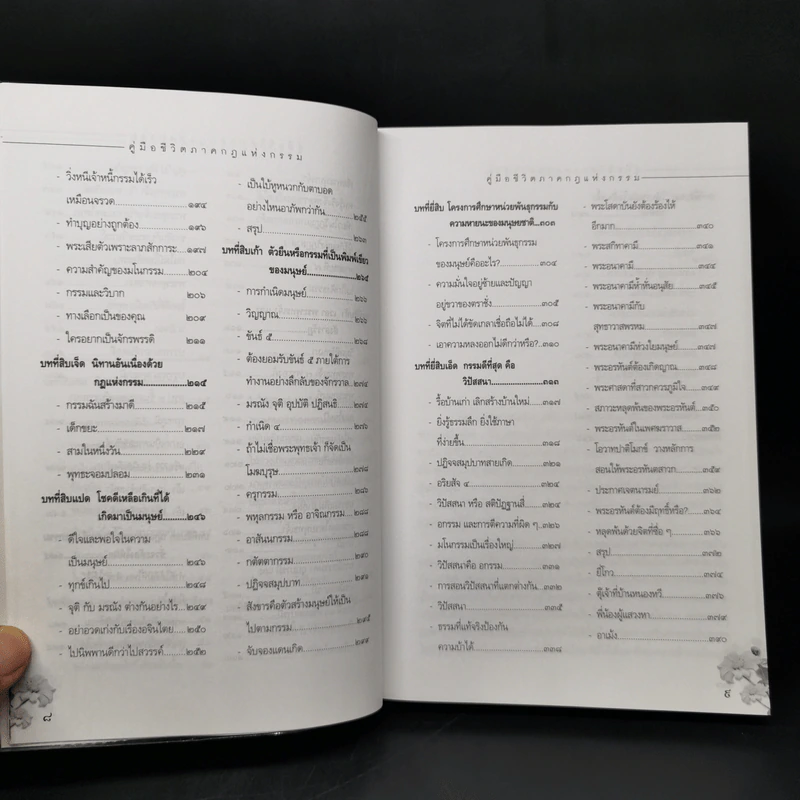 คู่มือชีวิตภาคกฎแห่งกรรม
- วิ่งหนีเจ้าหนี้กรรมได้เร็ว
เหมือนจรวด.................๑๙๔
- ทำบุญอย่างถูกต้อง........๑๙๖
- พระเสียตัวเพราะลาภสักการะ..๑๙๗
- ความสำคัญของมโนกรรม....๒๐๔
- กรรมและวิบาก..............๒๐๖
- ทางเลือกเป็นของคุณ........๒๐๙
- ใครอยากเป็นจักรพรรดิ......๒๑๑
บทที่สิบเจ็ด นิทานอันเนื่องด้วย
กฎแห่งกรรม.................๒๑๔
- กรรมฉันสร้างมาดี..........๒๑๕
- เด็กขยะ....................๒๑๗
- สามในหนึ่งวัน..............๒๒๙
- พุทธะจอมปลอม.............๒๓๑
บทที่สิบแปด โชคดีเหลือเกินที่ได้
เกิดมาเป็นมนุษย์............๒๔๖
- ดีใจและพอใจในความ
เป็นมนุษย์..................๒๔๖
- ทุกข์เกินไป................๒๔๘
- จุติ กับ มรณัง ต่างกันอย่างไร..๒๔๙
- อย่าอวดเก่งกับเรื่องอจินไตย...๒๕๐
- ไปนิพพานดีกว่าไปสวรรค์....๒๕๒
- เป็นใบ้หูหนวกกับตาบอด
อย่างไหนอาภัพกว่ากัน........๒๕๕
- สรุป.......................๒๖๓
บทที่สิบเก้า ตัวยืนหรือกรรมที่เป็นพิมพ์เขียว
ของมนุษย์..................๒๖๕
- การกำเนิดมนุษย์............๒๖๖
- วิญญาณ....................๒๖๖
- ขันธ์ ๕....................๒๖๘
- ต้องยอมรับขันธ์ ๕ ภายใต้การ
ทำงานอย่างลึกลับของจักรวาล..๒๗๔
- มรณัง จุติ อุปบัติ ปฏิสนธิ
- กำเนิด ๔
- ถ้าไม่เชื่อพระพุทธเจ้า ก็จัดเป็น
โมฆบุรุษ...................๒๗๘
- ครุกรรม...................๒๘๖
- พหุลกรรม หรือ อาจิณกรรม...๒๘๘
- อาสันนกรรม................๒๘๘
- กตัตตากรรม................๒๙๐
- ปฏิจจสมุปบาท..............๒๙๑
- สังขารคือตัวสร้างมนุษย์ให้เป็น
ไปตามกรรม.................๒๙๕
- จับจองแดนเกิด.............๒๙๙
๘
คู่มือชีวิตภาคกฎแห่งกรรม
บทที่ยี่สิบ โครงการศึกษาหน่วยพันธุกรรมกับ
ความหายนะของมนุษยชาติ...๓๐๓
- โครงการศึกษาหน่วยพันธุกรรม
ของมนุษย์คืออะไร?..........๓๐๔
- ความมั่นใจอยู่ซ้ายและปัญญา
อยู่ขวาของตราชั่ง............๓๐๕
- จิตที่ไม่ได้ขัดเกลาเชื่อถือไม่ได้..๓๐๘
- เอาความหลงออกไม่ดีกว่าหรือ?..๓๑๐
บทที่ยี่สิบเอ็ด กรรมดีที่สุด คือ
วิปัสสนา....................๓๑๓
- รื้อบ้านเก่า เลิกสร้างบ้านใหม่..๓๑๗
- ยิ่งรู้ธรรมลึก ยิ่งใช้ภาษา
ที่ง่ายขึ้น...................๓๑๘
- ปฏิจจสมุปบาทสายเกิด.......๓๒๑
- อริยสัจ ๔..................๓๒๓
- วิปัสสนา หรือ สติปัฏฐานสี่
- อกรรม และการตีความที่ผิด ๆ..๓๒๖
- มโนกรรมเป็นเรื่องใหญ่.......๓๒๗
- วิปัสสนาคือ อกรรม
- การสอนวิปัสสนาที่แตกต่างกัน..๓๓๒
- วิปัสสนา...................๓๓๕
- ธรรมที่แท้จริงป้องกัน
ความบ้าได้..................๓๓๘
- พระโสดาบันยังต้องร้องไห้
อีกมาก.....................๓๔๐
- พระสกิทาคามี...............๓๔๑
- พระอนาคามี................๓๔๔
- พระอนาคามีห้ำหั่นอนุสัย......๓๔๕
- พระอนาคามีกับ
สุทธาวาสพรหม..............๓๔๗
- พระอนาคามีห่วงใยมนุษย์
- พระอรหันต์ต้องเกิดญาณ.....๓๔๘
- พระศาสดาที่สาวกควรภูมิใจ...๓๔๙
- สภาวะหลุดพ้นของพระอรหันต์..๓๕๐
- พระอรหันต์ในเพศฆราวาส....๓๕๒
- โอวาทปาติโมกข์ วางหลักการ
สอนให้พระอรหันตสาวก.......๓๕๙
- ประกาศเจตนารมย์...........๓๖๒
- พระอรหันต์ต้องมีฤทธิ์หรือ?...๓๖๔
- หลุดพ้นด้วยจิตที่ซื่อ ๆ........๓๖๖
- สรุป.......................๓๗๒
- ยี่โถว
- ตู้เจ้าที่บ้านหนองหวี..........๓๗๖
- พี่น้องผู้แสวงหา
- อาเม้ง.....................๓๙๐
๙